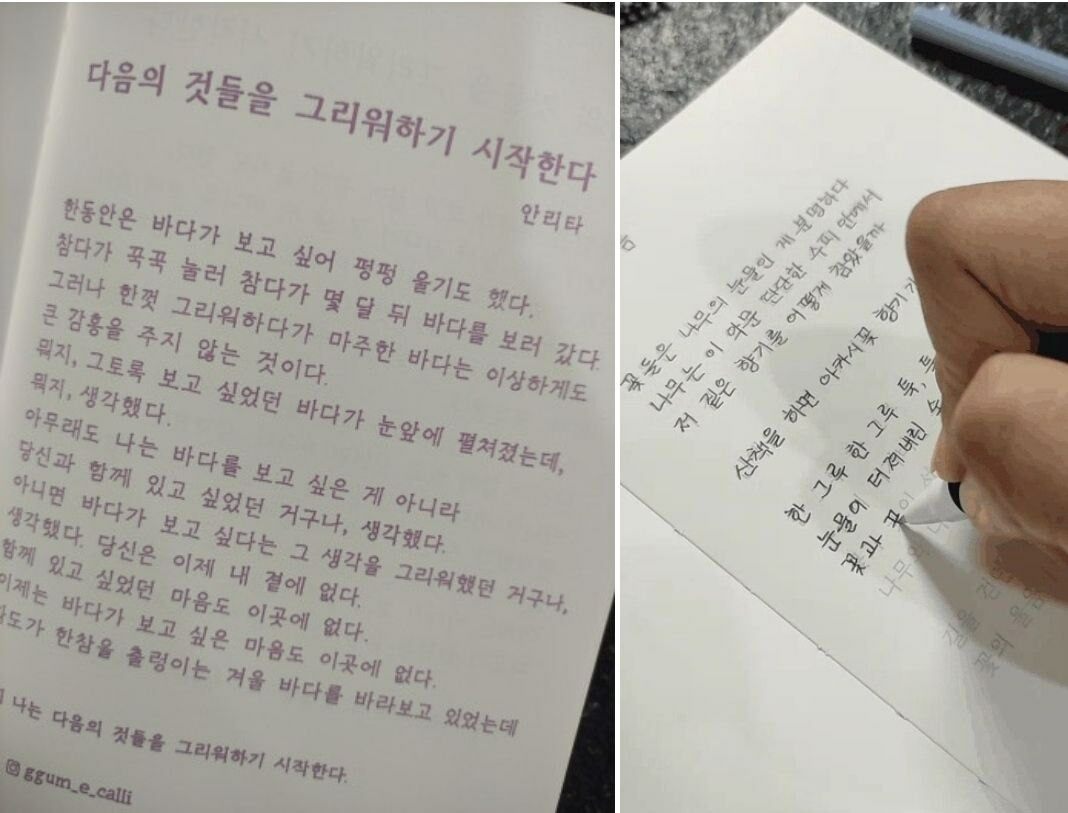 다음의 것들을 그리워하기 시작한다
안리타
한동안은 바다가 보고 싶어 펑펑 울기도 했다.
참다가 꾹꾹 눌러 참다가 몇 달 뒤 바다를 보러 갔다.
그러나 한껏 그리워하다가 마주한 바다는 이상하게도
큰 감흥을 주지 않는 것이다.
뭐지, 그토록 보고 싶었던 바다가 눈앞에 펼쳐졌는데,
뭐지, 생각했다.
아무래도 나는 바다를 보고 싶은 게 아니라
당신과 함께 있고 싶었던 거구나, 생각했다.
아니면 바다가 보고 싶다는 그 생각을 그리워했던 거구나,
생각했다. 당신은 이제 내 곁에 없다.
함께 있고 싶었던 마음도 이곳에 없다.
이제는 바다가 보고 싶은 마음도 이곳에 없다.
한참을 출렁이는 겨울 바다를 바라보고 있었는데
나는 다음의 것들을 그리워하기 시작한다.
ggum_e_calli
꽃들은 나무의 눈물인 게 분명하다
나무는 이 악문 단단한 수피 안에서
저 짙은 향기를 어떻게 참았을까
산책을 하면 아카시꽃 향기가
한 그루 한 그루 툭, 툭
눈물이 터져버린
꽃과 꽃이
나무와
길을
꽃의 울음